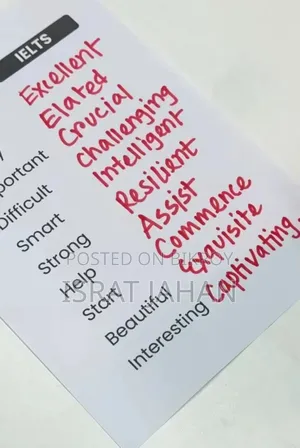 IELTS
Excellent
y Elated
portant Crucial
Difficult Challenging
Smart Intelligent
Strong Resilient
Help Assist
Start Commence
Beautiful Exquisite
Interesting Captivating
POSTED ON BIKROY
ISRAT JAHAN